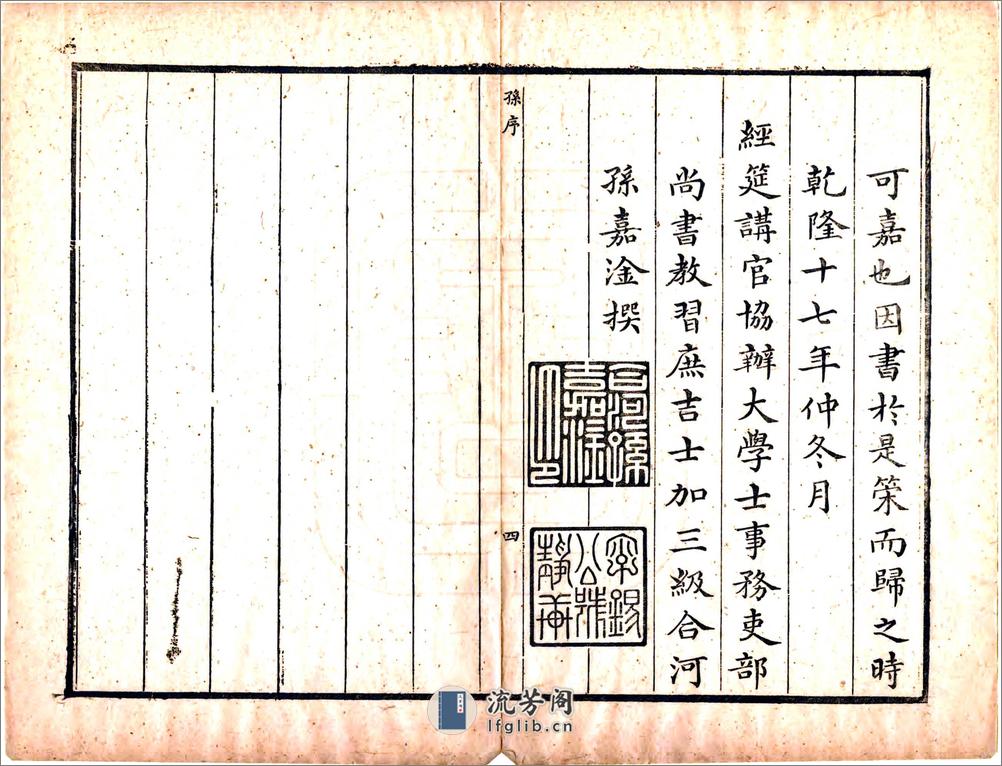 可嘉也因書於是策而歸之時
乾隆十七年仲冬月
經筵講官協辦大學士事務吏部
尚書教習庶吉士加三級合河
孫嘉淦撰
合河孫嘉淦印
字錫公號靜軒
孫序
四
流芳阁
lfglib.cn